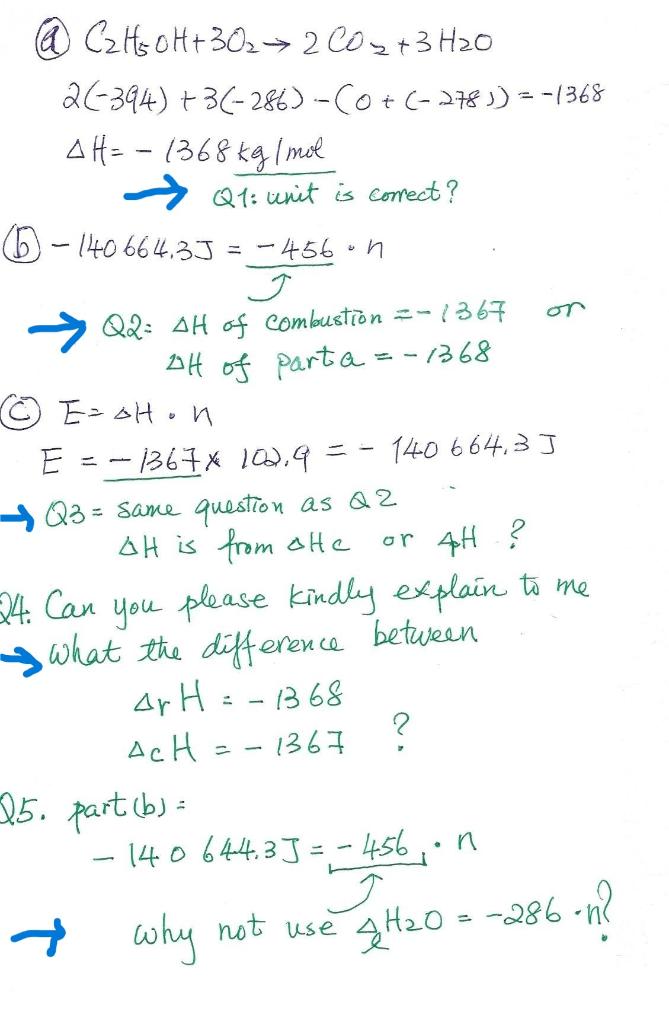 (a) C2H5OH+3O2→ 2CO2+3H2O
2(-394) + 3(-286) - (0 + (-278)) = -1368
ΔH= - 1368 kg/mol
→ Q1: unit is correct?
(b) - 140 664.3J = -456 · n
→ Q2: ΔH of combustion = -1367 or
ΔH of part a = -1368
(c) E= ΔH · n
E = -1367 x 102.9 = - 140 664.3 J
→ Q3 = same question as Q2
ΔH is from ΔHc or ΔH ?
Q4. Can you please kindly explain to me
→ what the difference between
ΔrH = -1368
ΔcH = -1367 ?
Q5. part (b) =
- 140 644.3J = -456 · n
→ why not use ΔH2O = -286 · n?